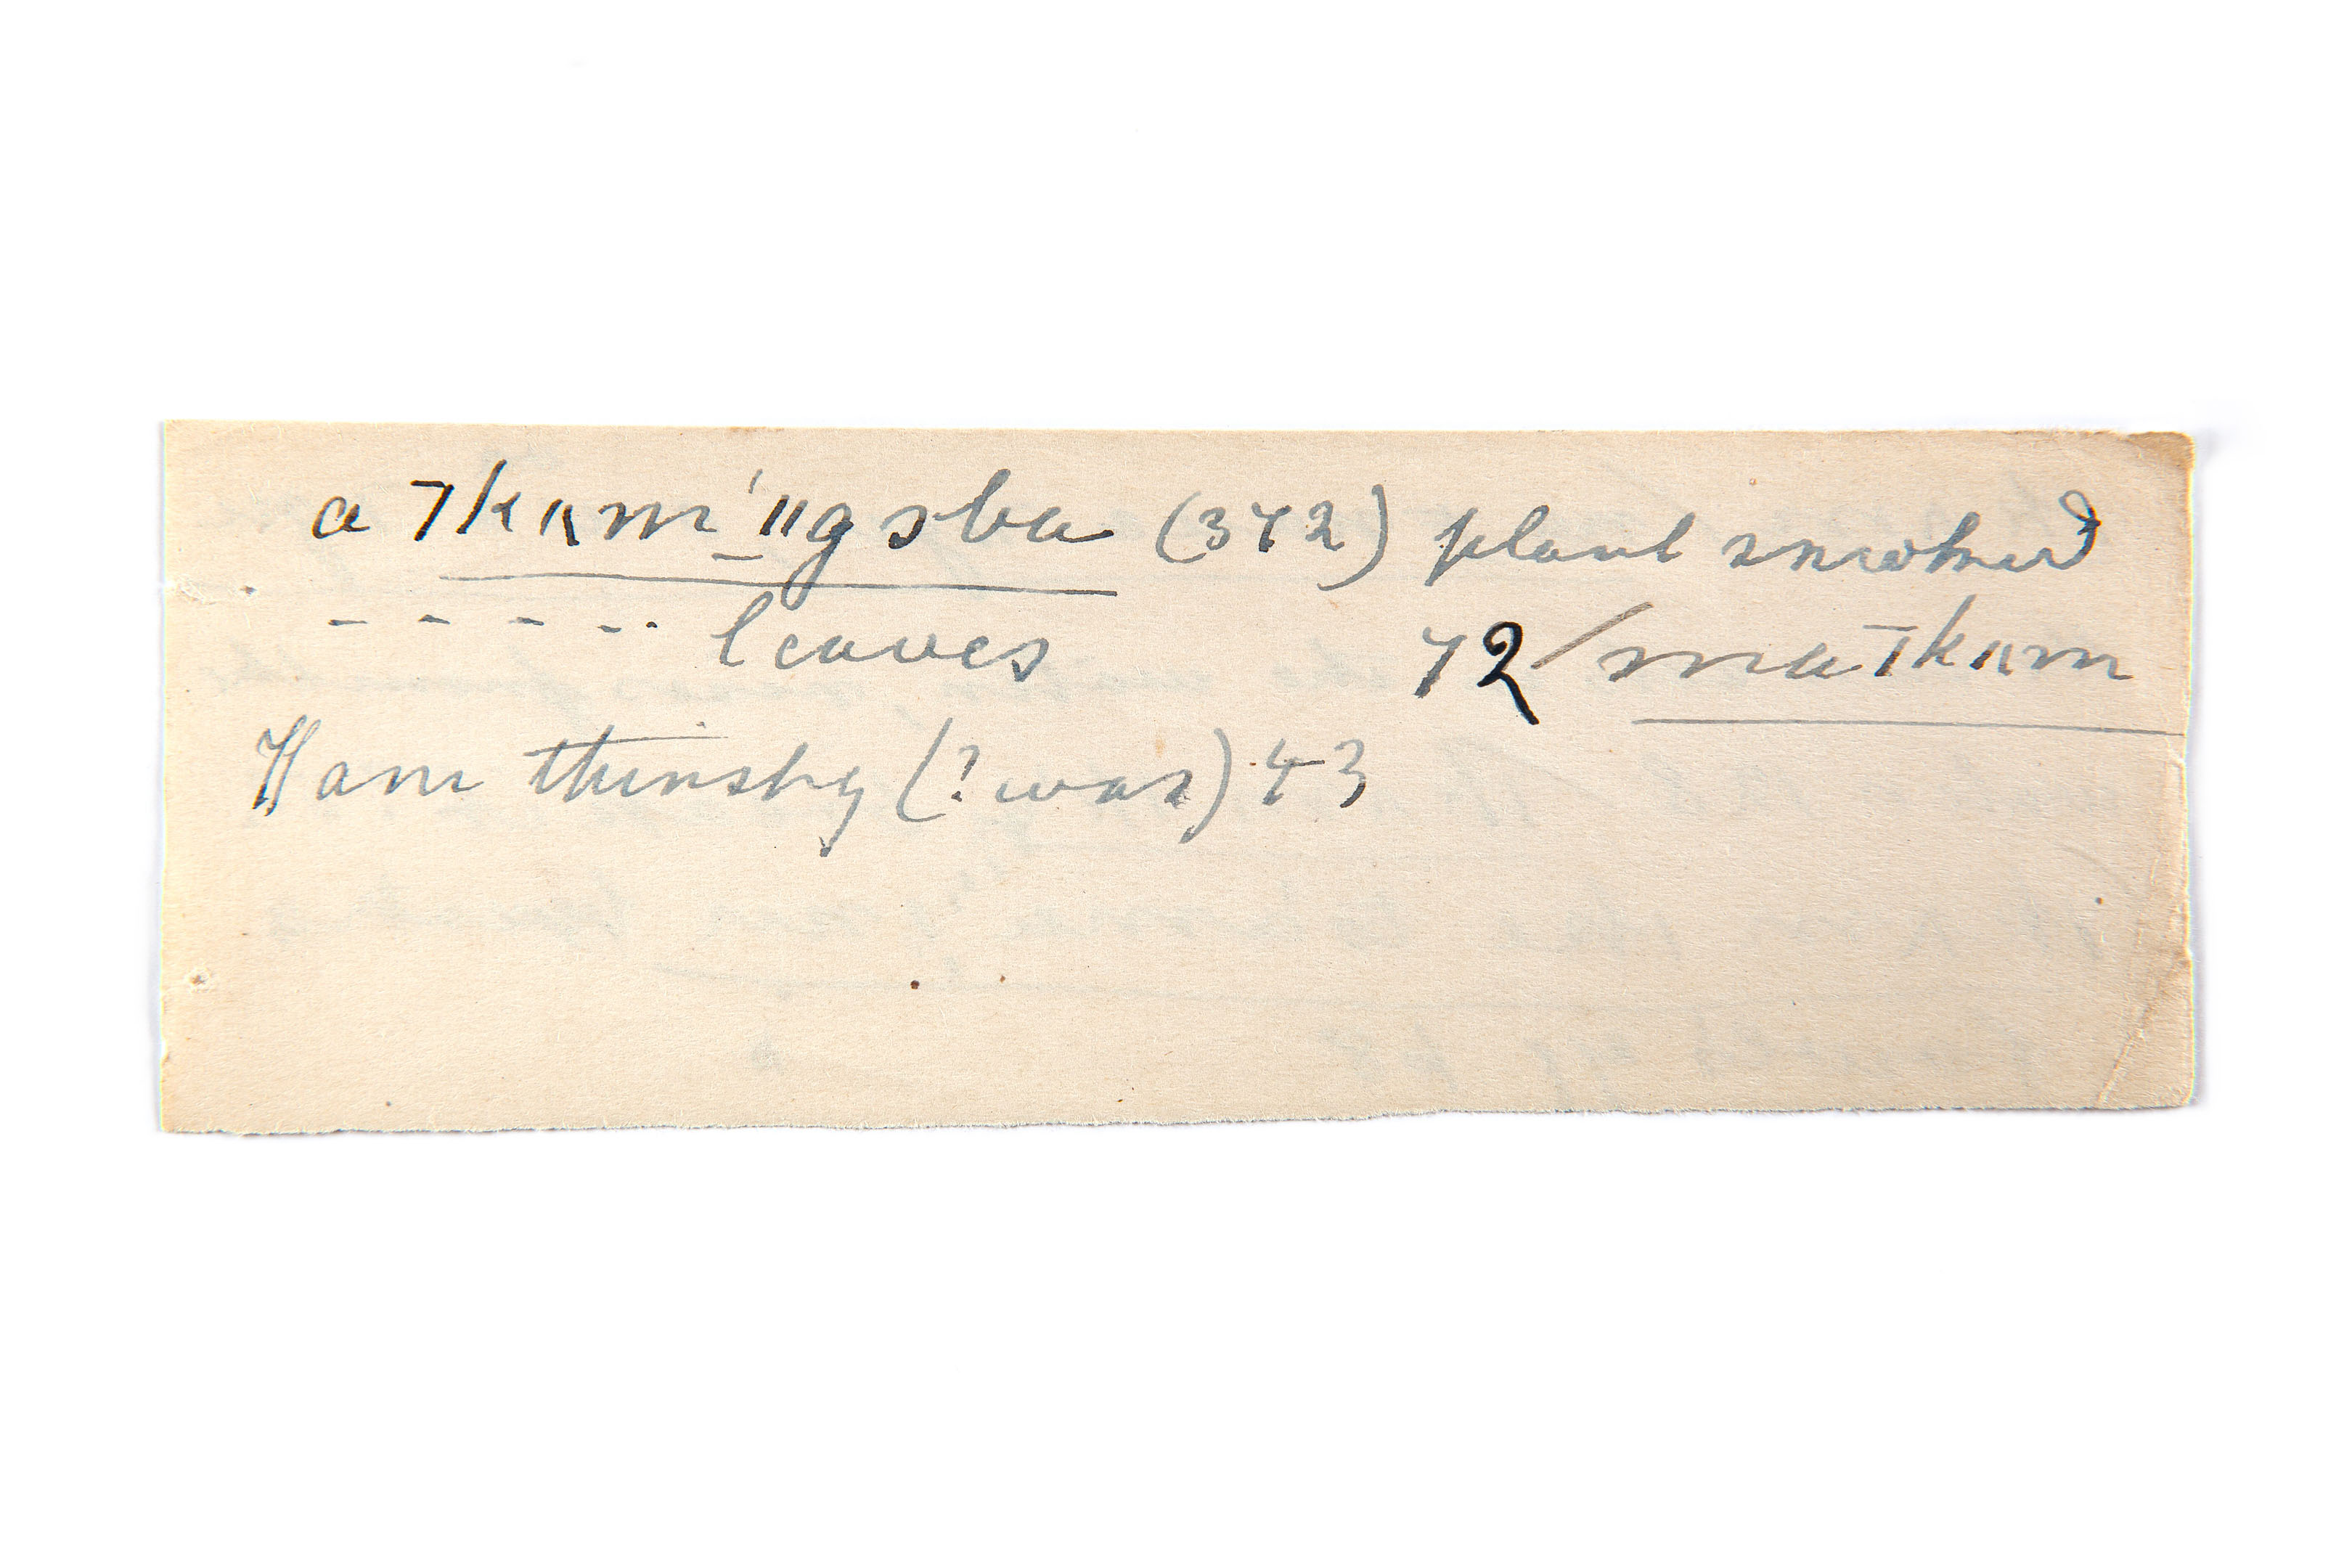 a ⁊kʌm'ıı̱gsba (372) plant smoked
- - - - -. leaves 72/ma⁊kʌm
Ham thirsty (? was) 43